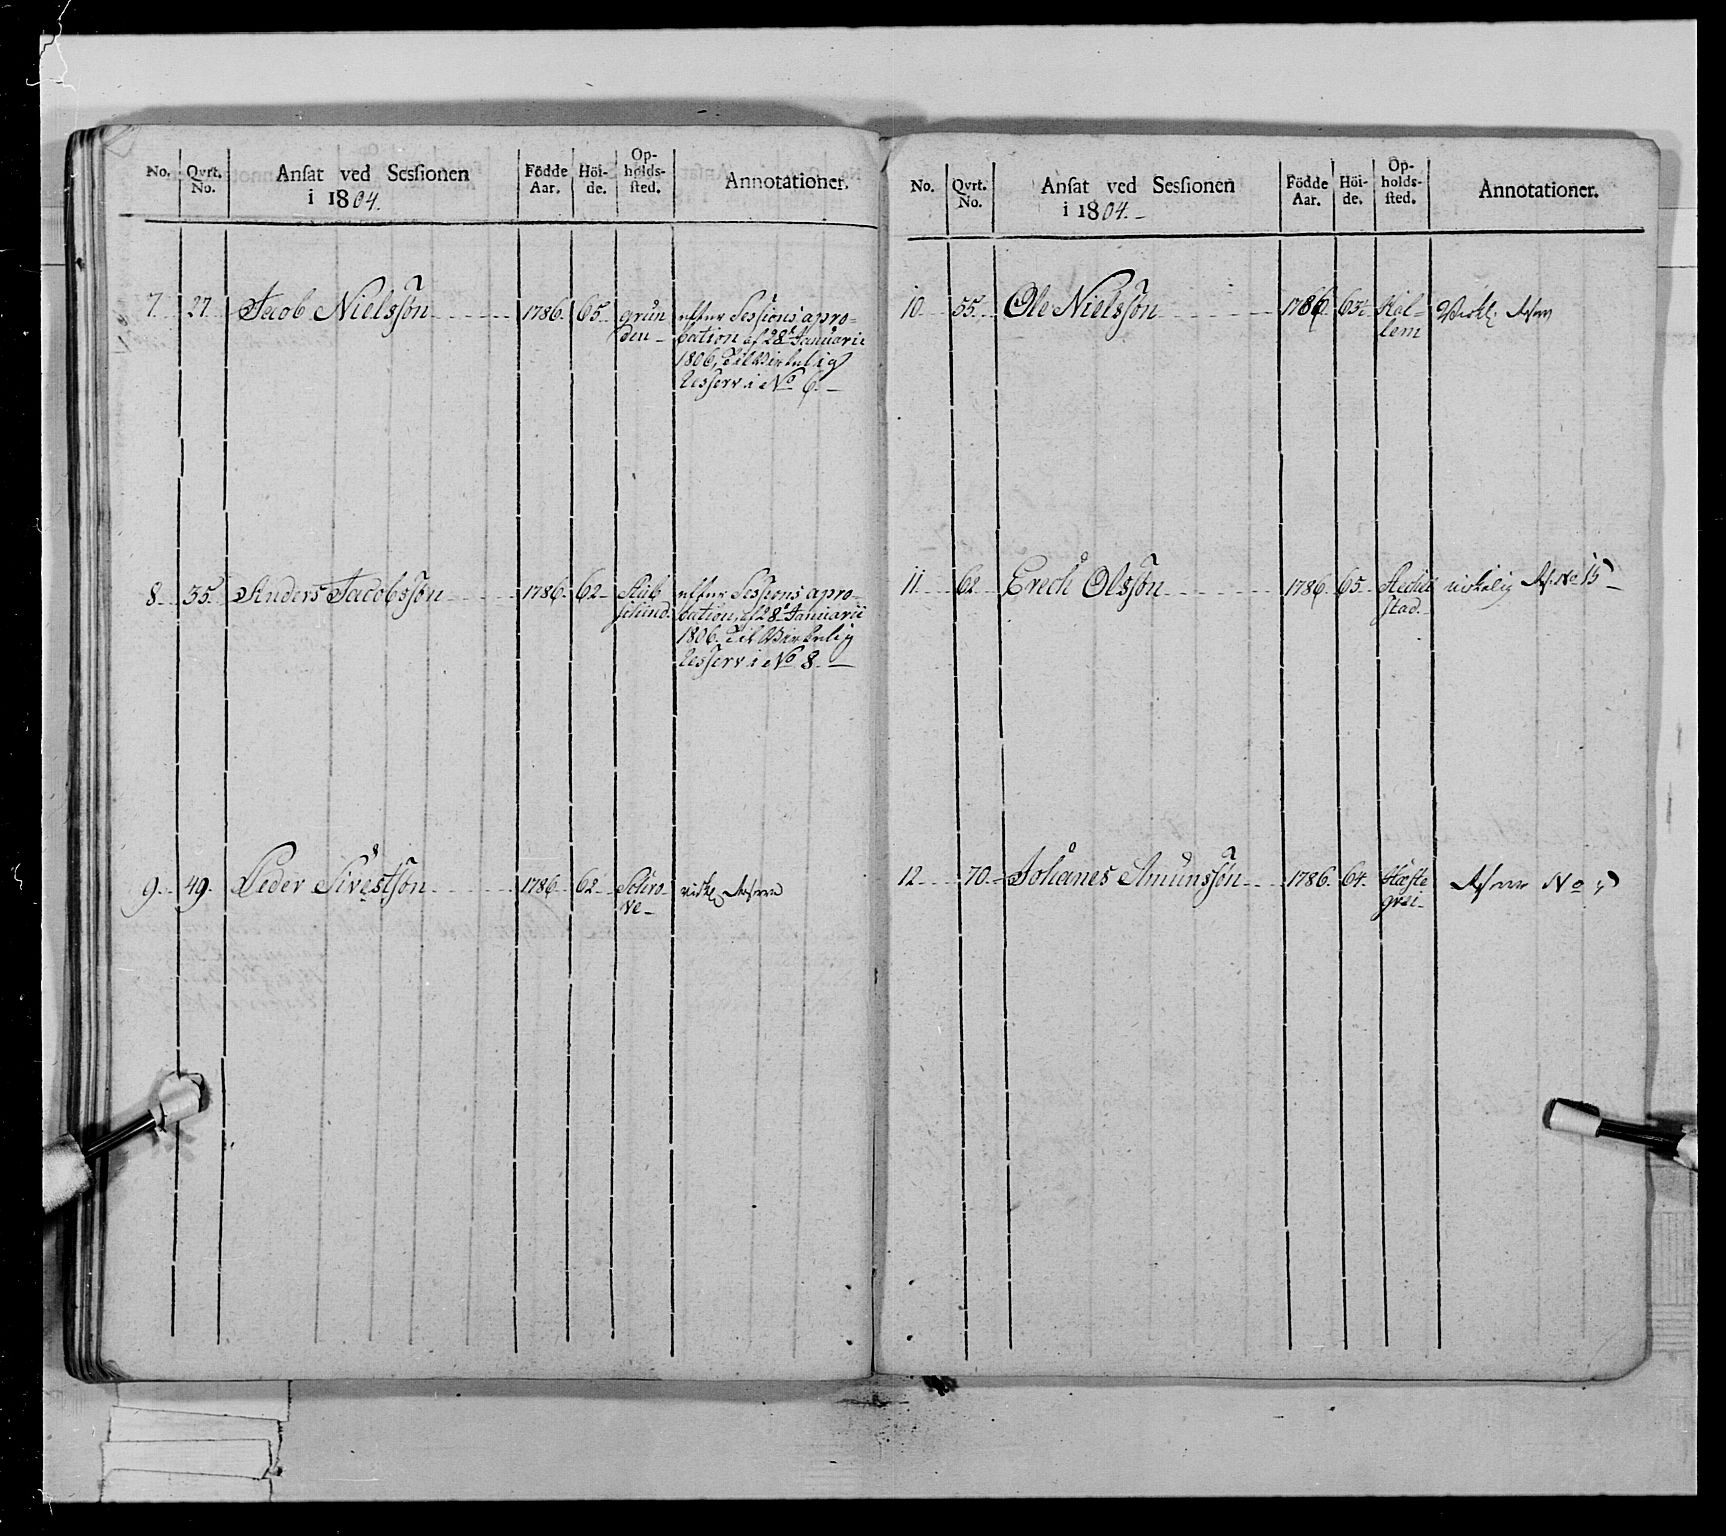 No. Qvrt. No. Ansat ved Sessionen i 1804. Födde Aar. Höi-de. Op-holds-sted. Annotationer.
7. 27. Jacob Nielssøn 1786. 65. grün efter Sessions apro-
den bation af 28de Januarii
1806, til Virkelig
Resserv i No 6.
8. 35. Anders Jacobssøn 1786. 62. Stüb efter Sessions apro-
schind. bation, af 28de Januarii
1806. til Virkelig
Resserv i No 8.
9. 49. Peder Sivertsøn 1786. 62. virkl Reserve
ve
No. Qvrt. No. Ansat ved Sessionen i 1804. Födde Aar. Höi-de. Op-holds-sted. Annotationer.
10. 55. Ole Nielssøn 1786. Hol-
lem
11. 62. Erech Olssøn 1786. 65. virkelig No 15
stad.
12. 70. Johanes Amunssøn 1786. 64. Hæste
grei No